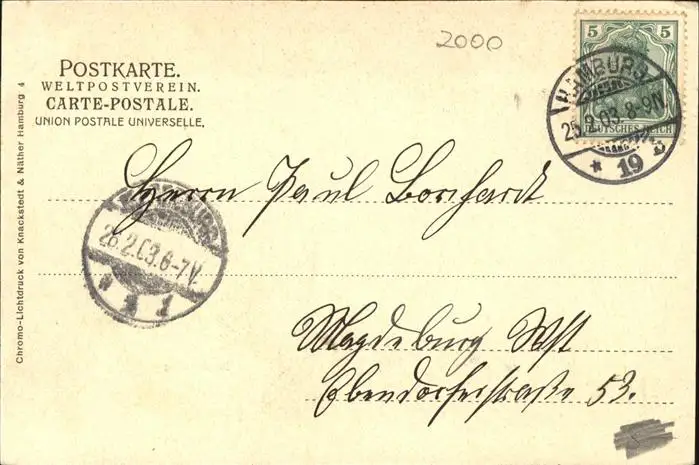 2000
5 5
DEUTSCHES REICH
HAMBURG
25.2.03.8-9N.
* 19 b
POSTKARTE.
WELTPOSTVEREIN.
CARTE-POSTALE.
UNION POSTALE UNIVERSELLE.
Herrn Paul Borchardt
26.2.03.6-7V.
1
Magdeburg Wst
Ebendorferstraße 53.
Chromo-Lichtdruck von Knackstedt & Näther Hamburg 4